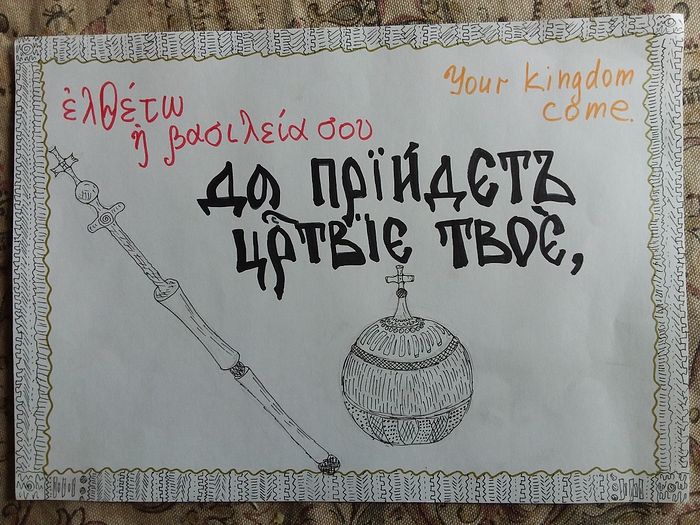 ἐλθέτω
ἡ βασιλεία σου
Your kingdom
come.
да прїйдетъ
цр҃твїе твоѐ,